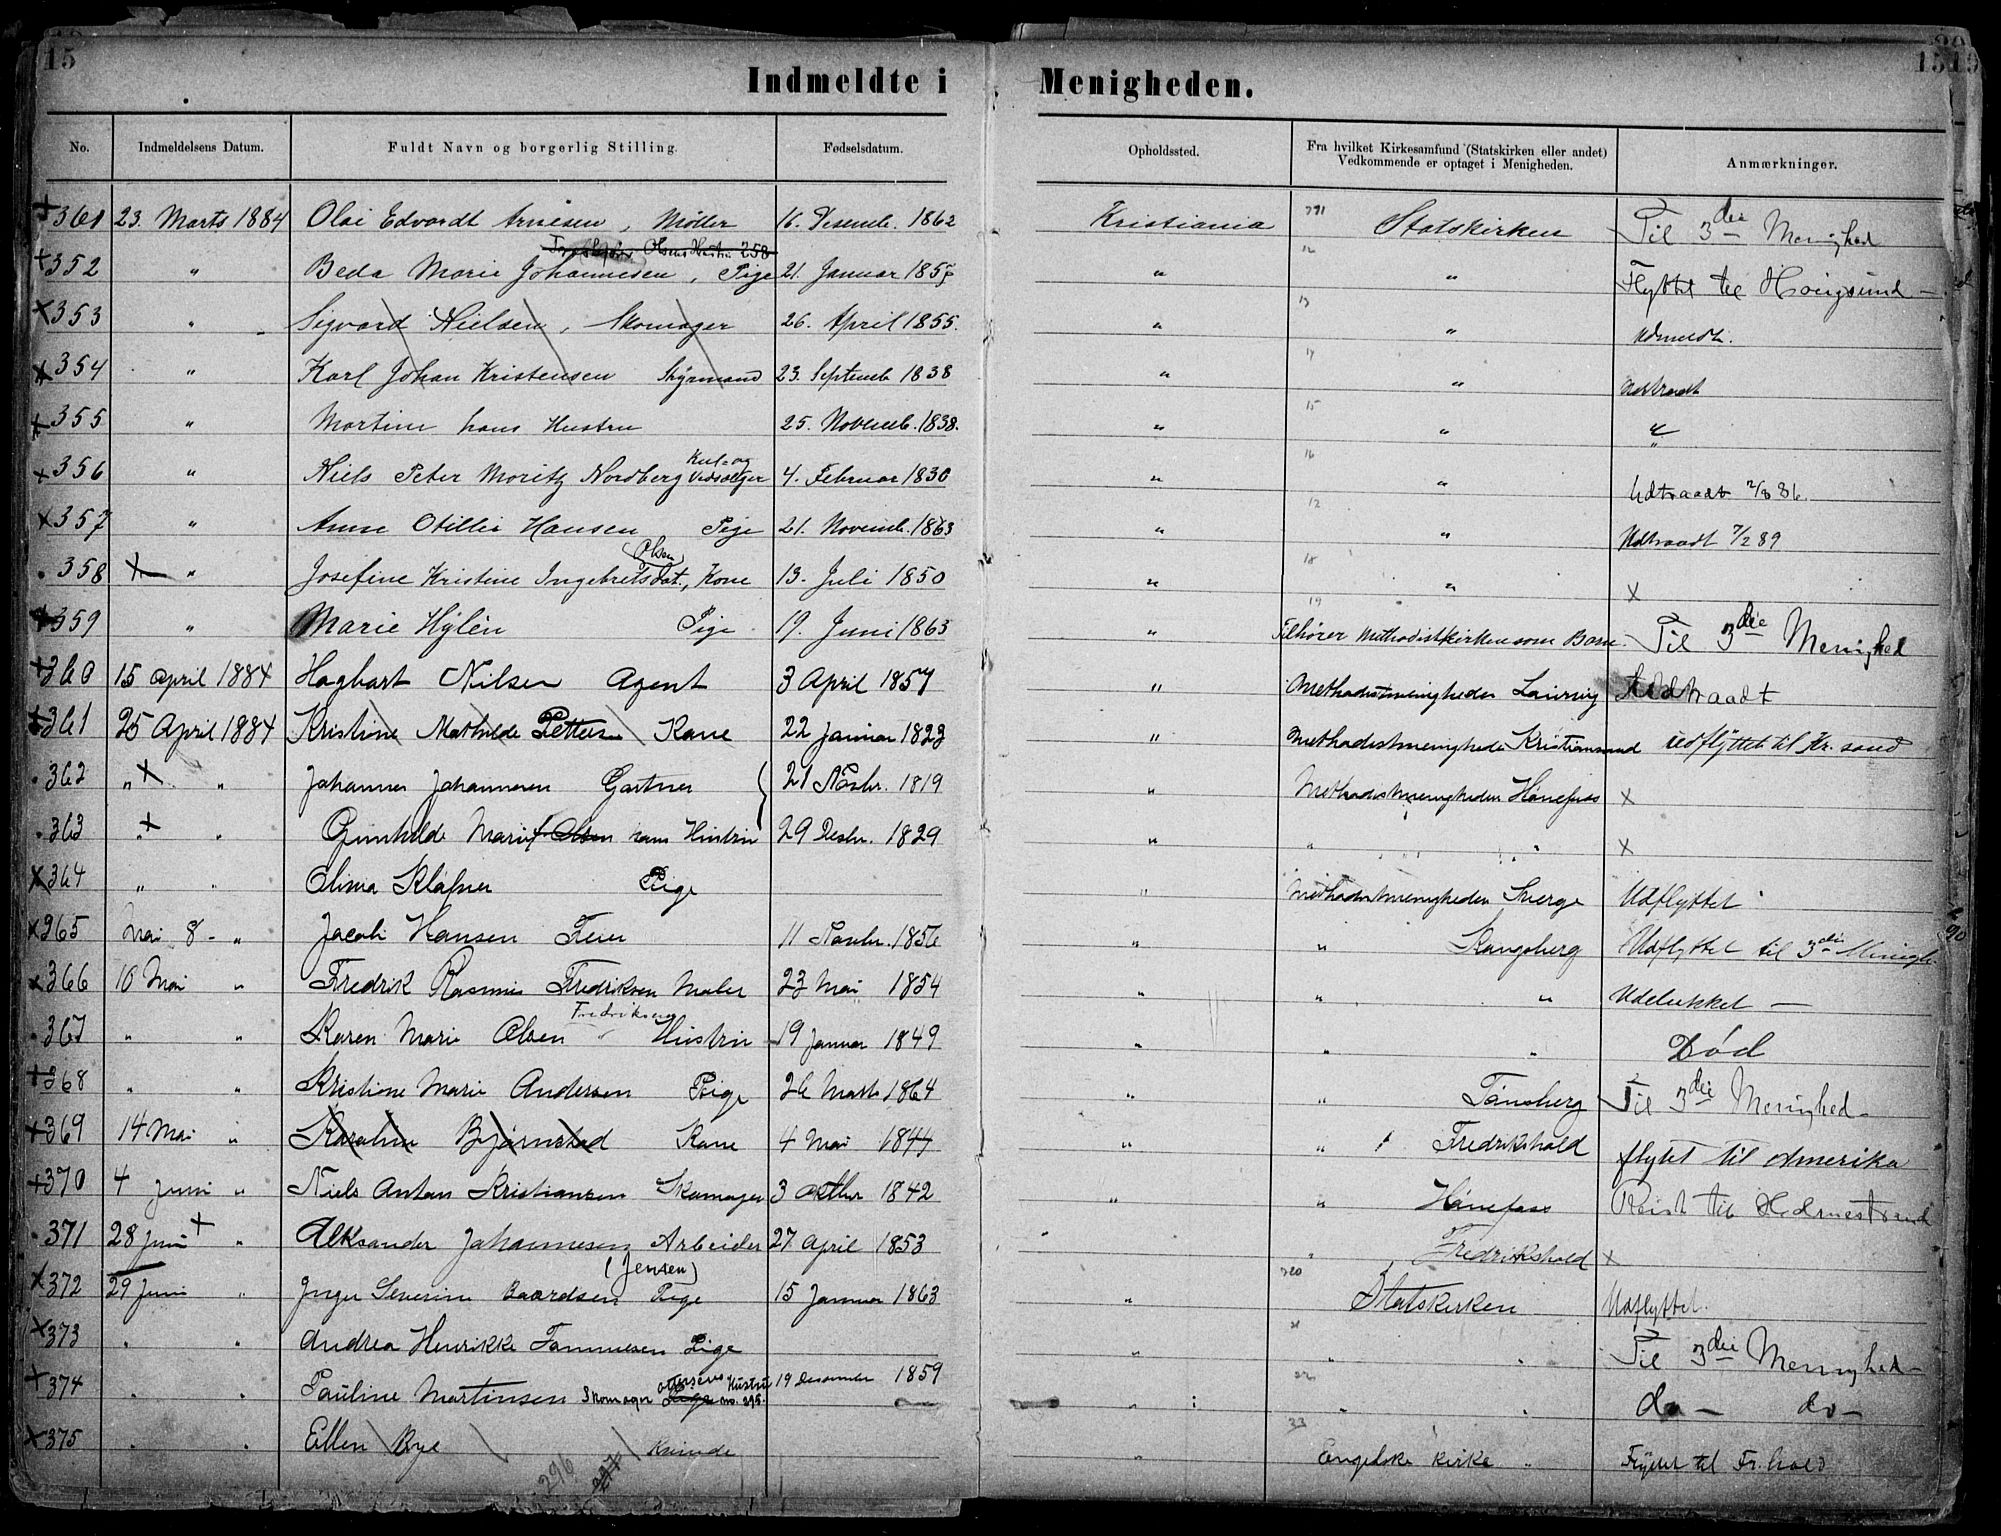 15
1515
Indmeldte i Menigheden.
No. Indmeldelsens Datum. Fuldt Navn og borgerlig Stilling. Fødselsdatum. Opholdssted. Fra hvilket Kirkesamfund (Statskirken eller andet) Vedkommende er optaget i Menigheden. Anmærkninger.
+361 23. Marts 1884 Olai Edvardt Arnesen, Møller 16. Desemb. 1862 Kristiania Statskirken Til 3die Menighed
Olsens Hustru 258
+352 " Beda Marie Johannesen, Pige 21. Januar 1857 " 12 " Flyttet til Haugsund –
×353 " Sigvard Nielsen, Skomager 26. April 1855. " 13 " Udmeldt.
×354 " Karl Johan Kristensen Styrmand 23. Septemb 1838 " 14 " Udtraadt
+355 " Martine hans Hustru 25. Novemb. 1838. " 15 " "
Kul- og
+356 " Niels Peter Moritz Nordberg Vedsælger 4. Februar 1830 " 16 " Udtraadt 2/8 86.
×357 " Anne Otillie Hansen Pige 21. Novemb. 1863 " " Udtraadt 7/2 89
(Olsen)
358 × " Josefine Kristine Ingebretsdat., Kone 13. Juli 1850 " 18 " ×
+359 " Marie Hylén Pige 19. Juni 1863 " 19 Tilhører Methodistkirken som Barn. Til 3die Menighed
+360 15 April 1884 Hagbart Nilsen Agent 3 April 1857 " Methodistmenigheden Laurvig Udtraadt
+361 25 April 1884 Kristine Mathilde Pettersen Kone 22 Januar 1823 " Methodistmenigheden Kristiansand udflyttet til Kr. sand
362 " × " Johannes Johannesen Gartner 21 Novbr. 1819 " Methodistmenigheden Hønefoss ×
363 " + " Gunhilde Marie f. Olsen hans Hustru 29 Desbr. 1829 " " " ×
×364 " " Olina Klafner Pige " Methodistmenigheden Sverge Udflyttet
×365 Mai 8 – " Jacob Hansen Feier 11 Novbr. 1856 " " Kongsberg Udflyttet til 3die Menigh.
×366 10 Mai " Fredrik Rasmus Fredriksen Maler 23 Mai 1854 " " " Udelukket –
Fredriksen
367 " " Karen Marie Olsen Hustru 19 Januar 1849 " " " Død
+368 " " Kristine Marie Andersen Pige 26 Marts 1864 " " Tønsberg Til 3die Menighed –
+369 14 Mai " Karoline Bjørnstad Kone 4 Mai 1844 " " Fredrikshald flyttet til Amerika
+370 4 Juni " Niels Anton Kristiansen Skomager 3 Oktbr 1842 " " Hønefoss Reist til Holmestrand
371 28 Juni + " Aleksander Johannesen Arbeider 27 April 1853 " " Fredrikshald ×
(Jensen)
×372 29 Juni " Inger Severine Baardsen Pige 15 Januar 1863 " 320 Statskirken Udflyttet.
×373 " " Andrea Henrikke Tommesen Pige " 21 " " Til 3die Menighed –
+374 " " Pauline Martinsen Skomager Ottersens Hustru Pige no. 295. 19 Desember 1859 " " " do – do –
×375 " " Ellen Bye Kvinde " 33 Engelske Kirke " Flyttet til Fr. hald
296
297